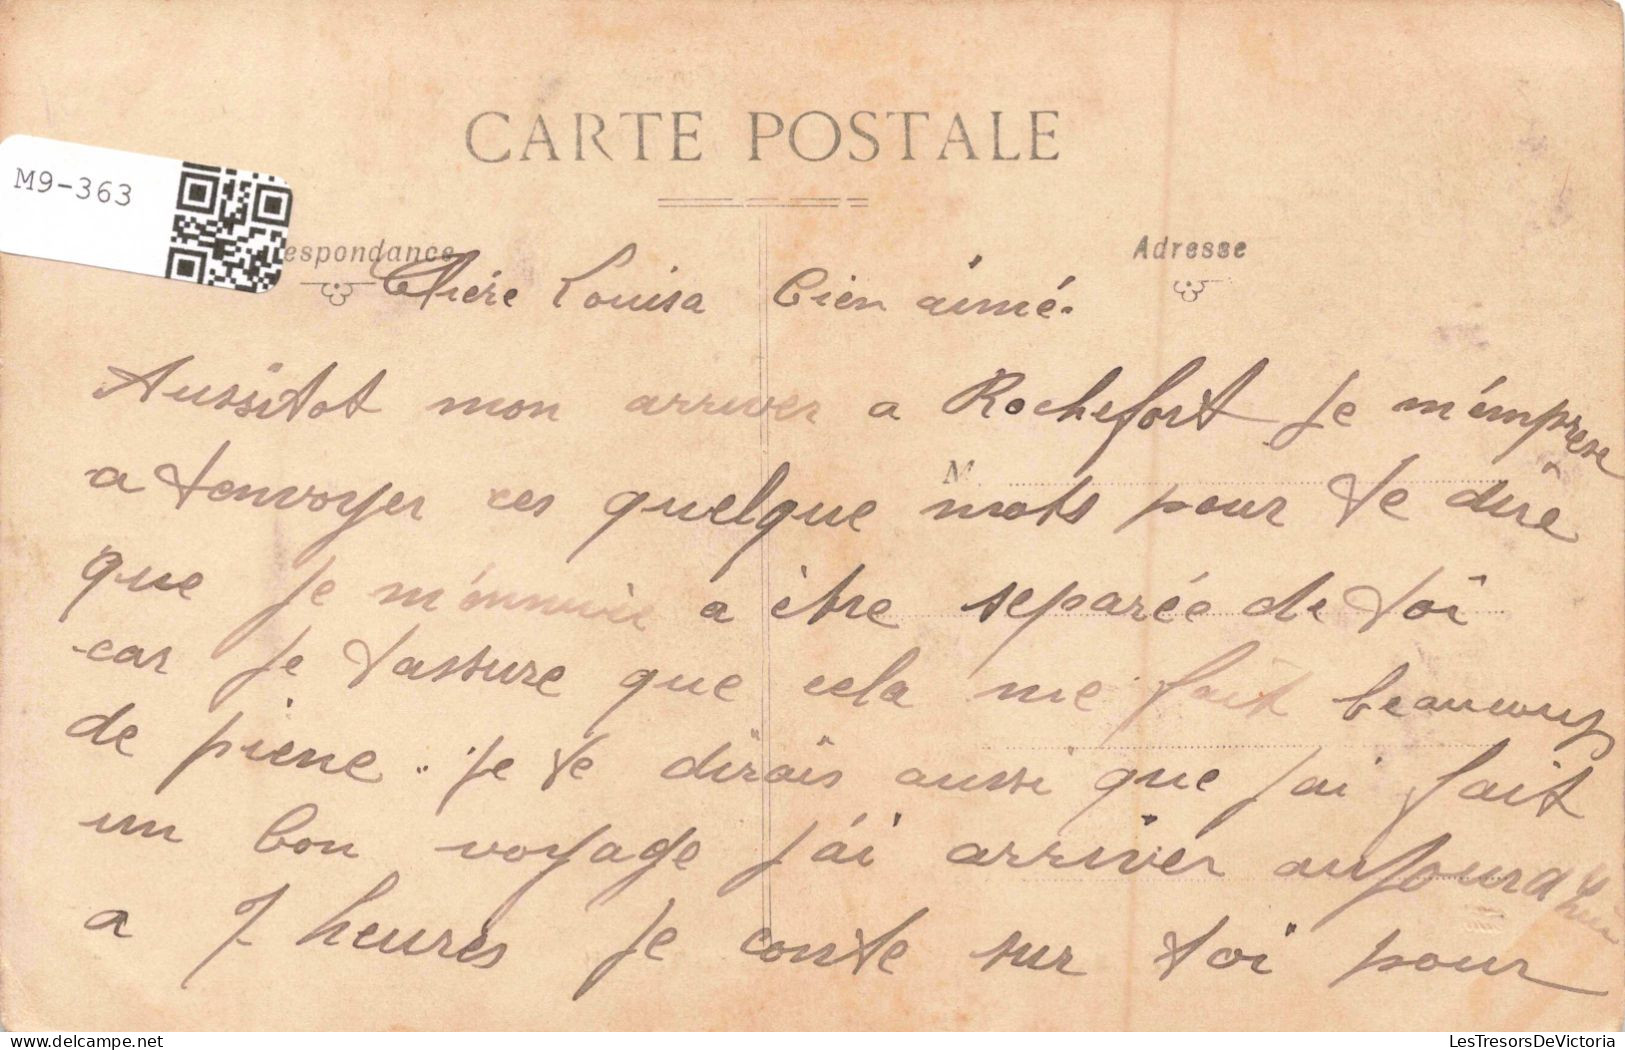 CARTE POSTALE
M9-363
espondance
Adresse
Chère Louisa bien aimé.
Aussitot mon arriver a Rochefort je m'emprese
M
a tenvoyer ces quelque mots pour te dire
que je m'ennuie a être separée de toi
car je tassure que cela me fait beaucoup
de piene. je te dirais aussi que jai fait
un bon voyage j'ai arriver aujourd'hui
a 7 heures je conte sur toi pour
LesTresorsDeVictoria
www.delcampe.net